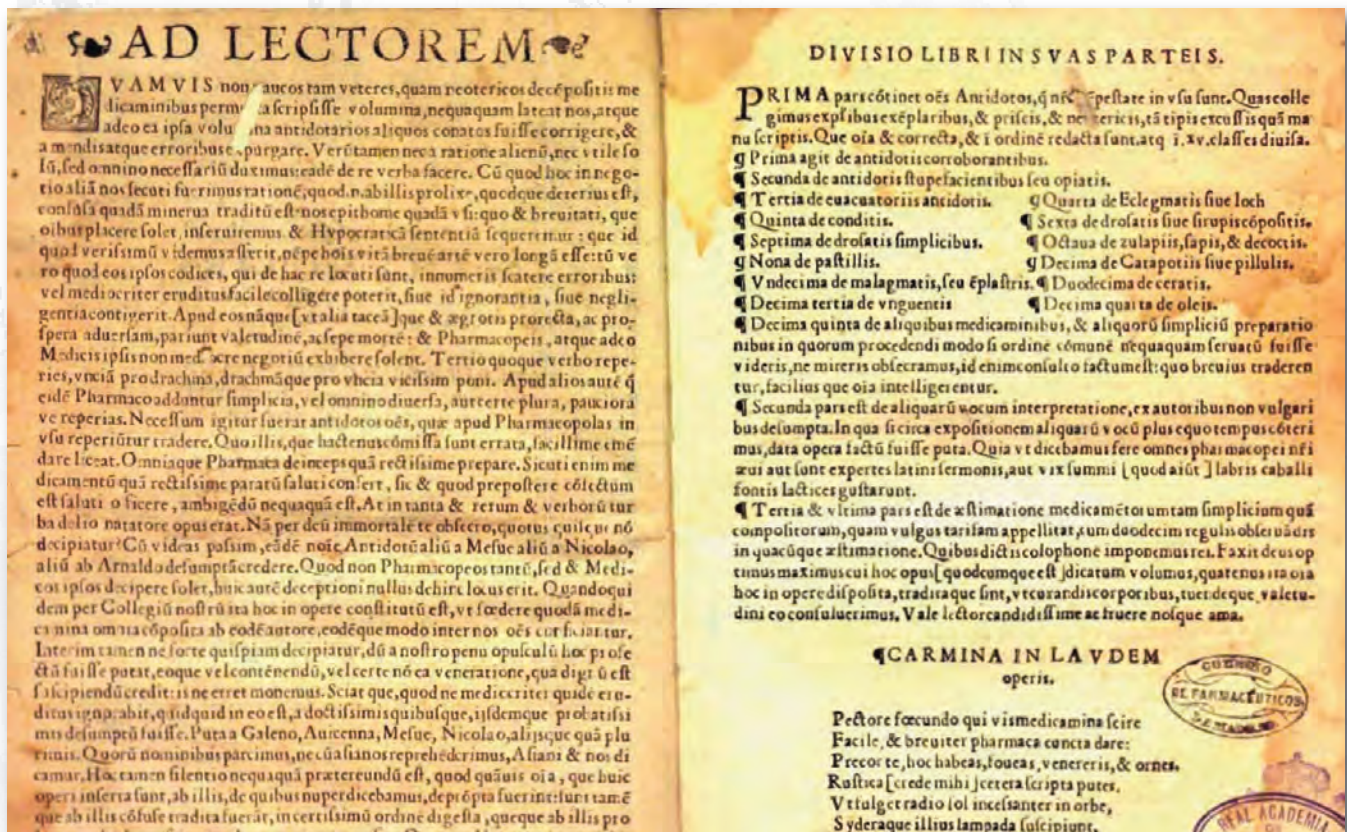 AD LECTOREM
QVAMVIS non paucos tam veteres, quam neotericos decēpositis me
dicaminibus scripsisse volumina, nequaquam lateat nos, atque
adeo ea ipsa antidotarios aliquos conatos fuisse corrigere, &
a mendis atque erroribus expurgare. Verūtamen nec a ratione alienū, nec vtile so
lū, sed omnino necessariū duximus: eadē de re verba facere. Cū quod hoc in nego-
tio aliā nos secuti fuerimus rationē, quod .n. ab illis prolixe, quodque deterius est,
confusa quadā minerua traditū est: nos epithome quadā vsi: quo & breuitati, que
oibus placere solet, inseruiremus. & Hypocraticā sententiā sequeremur: que id
quod verissimū videmus asserit, nēpe hois vitā breuē artē vero longā esse: tū ve
ro quod eos ipsos codices, qui de hac re locuti sunt, innumeris scatere erroribus:
vel mediocriter eruditus facile colligere poterit, siue id ignorantia, siue negli-
gentia contigerit. Apud eos nāque [vt alia taceā] que & ægrotis pro recta, ac pro-
spera aduersam, pariunt valetudinē, ac sepe mortē: & Pharmacopeis, atque adeo
Medicis ipsis non mediocre negotiū exhibere solent. Tertio quoque verbo repe-
ries, vnciā pro drachma, drachmāque pro vncia vicissim poni. Apud alios autē q̄
eidē Pharmaco adduntur simplicia, vel omnino diuersa, aut certe plura, pauciora
ve reperias. Necessum igitur fuerat antidotos oēs, quæ apud Pharmacopolas in
vsu reperiūtur tradere. Quo illis, que hactenus cōmissa sunt errata, facillime emē
dare liceat. Omniaque Pharmaca deinceps quā rectissime prepare. Sicuti enim me
dicamentū quā rectissime paratū saluti confert, sic & quod prepostere cōfectum
est saluti officere, ambigēdū nequaquā est. At in tanta & rerum & verborū tur
ba delio natatore opus erat. Nā per deū immortalē te obsecro, quotus quisque nō
decipiatur? Cū videas passim, eādē noīe Antidotū aliū a Mesue aliū a Nicolao,
aliū ab Arnaldo desumptā credere. Quod non Pharmacopeos tantū, sed & Medi-
cos ipsos decipere solet, huic autē deceptioni nullus dehinc locus erit. Quandoqui
dem per Collegiū nostrū ita hoc in opere constitutū est, vt fœdere quodā medi-
camina omnia cōposita ab eodē autore, eodēque modo inter nos oēs conficiantur.
Interim tamen ne forte quispiam decipiatur, dū a nostro penu opusculū hoc profe
ctū fuisse putat, eoque vel contēnendū, vel certe nō ea veneratione, qua dignū est
suscipiendū crediterit ne erret monemus. Sciat que, quod ne mediocriter quidē eru-
ditus ignorabit, quidquid in eo est, a doctissimis quibusque, ijsdemque probatissi
mis desumptū fuisse. Puta a Galeno, Auicenna, Mesue, Nicolao, alijsque quā plu
rimis. Quorū nominibus parcimus, ne cū asianos reprehēderimus, Asiani & nos di
camur. Hoc tamen silentio nequaquā prætereundū est, quod quāuis oīa, que huic
operi inserta sunt, ab illis, de quibus nuper dicebamus, deprōpta fuerint: sunt tamē
que ab illis cōfuse tradita fuerāt, in certissimū ordinē digesta, queque ab illis pro
DIVISIO LIBRI IN SVAS PARTEIS.
PRIMA pars cōtinet oēs Antidotos, q̄ tēpestate in vsu sunt. Quas colle
gimus ex plusibus exēplaribus, & priscis, & neotericis, tā tipis excussis quā ma
nu scriptis. Que oīa & correcta, & ī ordinē redacta sunt. atq̄ ī .xv. classes diuisa.
¶ Prima agit de antidotis corroborantibus.
¶ Secunda de antidotis stupefacientibus seu opiatis.
¶ Tertia de euacuatoriis antidotis. ¶ Quarta de Eclegmatis siue loch
¶ Quinta de conditis. ¶ Sexta de drosatis siue sirupis cōpositis.
¶ Septima de drosatis simplicibus. ¶ Octaua de zulapiis, sapis, & decoctis.
¶ Nona de pastillis. ¶ Decima de Catapotiis siue pillulis.
¶ Vndecima de malagmatis, seu ēplastris. ¶ Duodecima de ceratis.
¶ Decima tertia de vnguentis ¶ Decima quarta de oleis.
¶ Decima quinta de aliquibus medicaminibus, & aliquorū simpliciū preparatio
nibus in quorum procedendi modo si ordinē cōmunē nequaquam seruatū fuisse
videris, ne mireris obsecramus, id enim consulto factum est: quo breuius traderen
tur, facilius que oīa intelligerentur.
¶ Secunda pars est de aliquarū vocum interpretatione, ex autoribus non vulgari
bus desumpta. In qua si circa expositionem aliquarū vocū plus equo tempus cōteri
mus, data opera factū fuisse puta. Quia vt dicebamus fere omnes pharmacopei nr̄i
æui aut sunt expertes latini sermonis, aut vix summi [quod aiūt] labris caballi
fontis lactices gustarunt.
¶ Tertia & vltima pars est de æstimatione medicamētorum tam simplicium quā
compositorum, quam vulgus tarifam appellitat, cum duodecim regulis obseruādis
in quacūque æstimatione. Quibus dictis colophone imponemus rei. Faxit deus op
timus maximus cui hoc opus [quodcumque est] dicatum volumus, quatenus ita oīa
hoc in opere disposita, traditaque sint, vt curandis corporibus, tuendeque valetu-
dini eo consuluerimus. Vale lector candidissime ac fruere nosque ama.
¶CARMINA IN LAVDEM
operis.
Pectore fœcundo qui vis medicamina scire
Facile, & breuiter pharmaca cuncta dare:
Precor te, hoc habeas, foueas, venereris, & ornes.
Rustica [crede mihi] cetera scripta putes.
Vt fulget radio sol incessanter in orbe,
Syderaque illius lampada suscipiunt,
DE FARMACÉUTICOS
REAL ACADEMIA